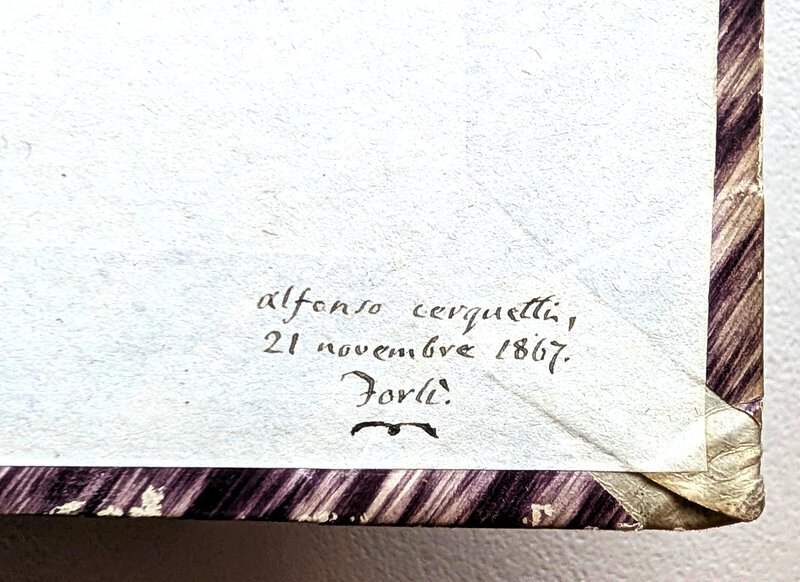 alfonso cerquetti,
21 novembre 1867.
Forlì.